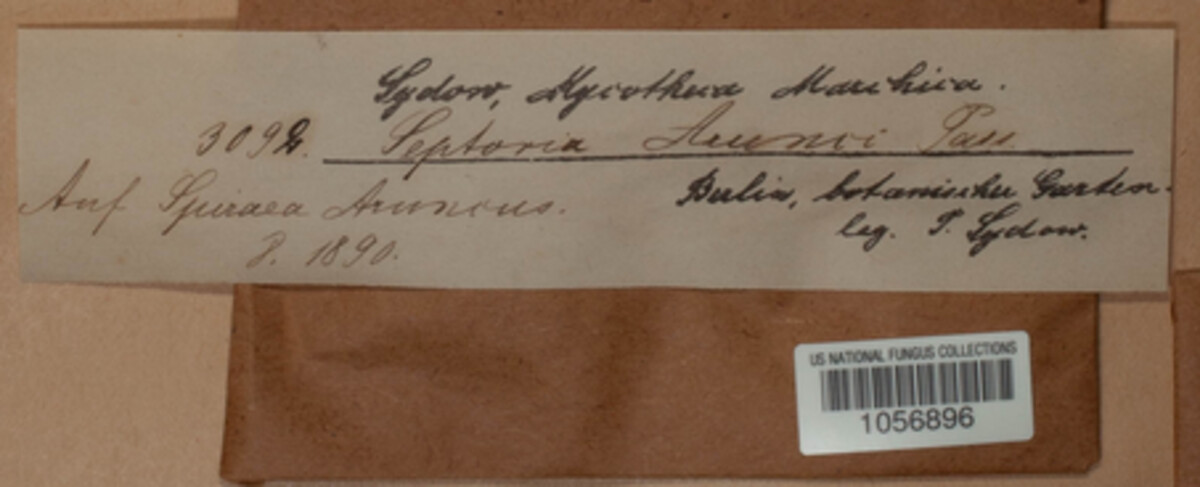 Sydow, Mycotheca Marchica.
3092. Septoria Arunci Pass.
Auf Spiraea Aruncus.
8. 1890.
Berlin, botanischer Garten.
leg. P. Sydow.
US NATIONAL FUNGUS COLLECTIONS
1056896